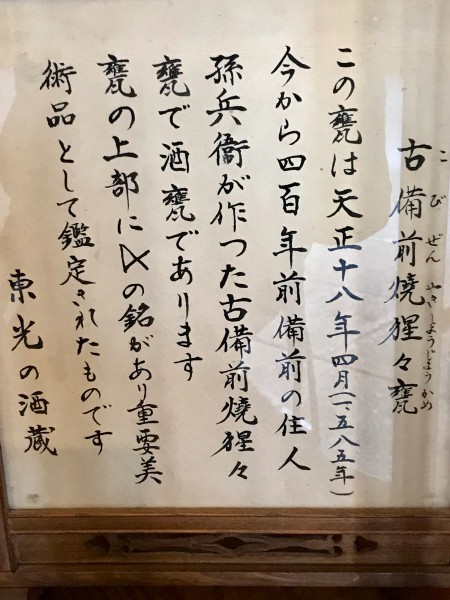 こびぜんやきしようじようかめ
古備前燒猩々甕
この甕は天正十八年四月(一、五八五年)
今から四百年前備前の住人
孫兵衞が作つた古備前燒猩々
甕で酒甕であります
甕の上部に〆の銘があり重要美
術品として鑑定されたものです
東光の酒蔵